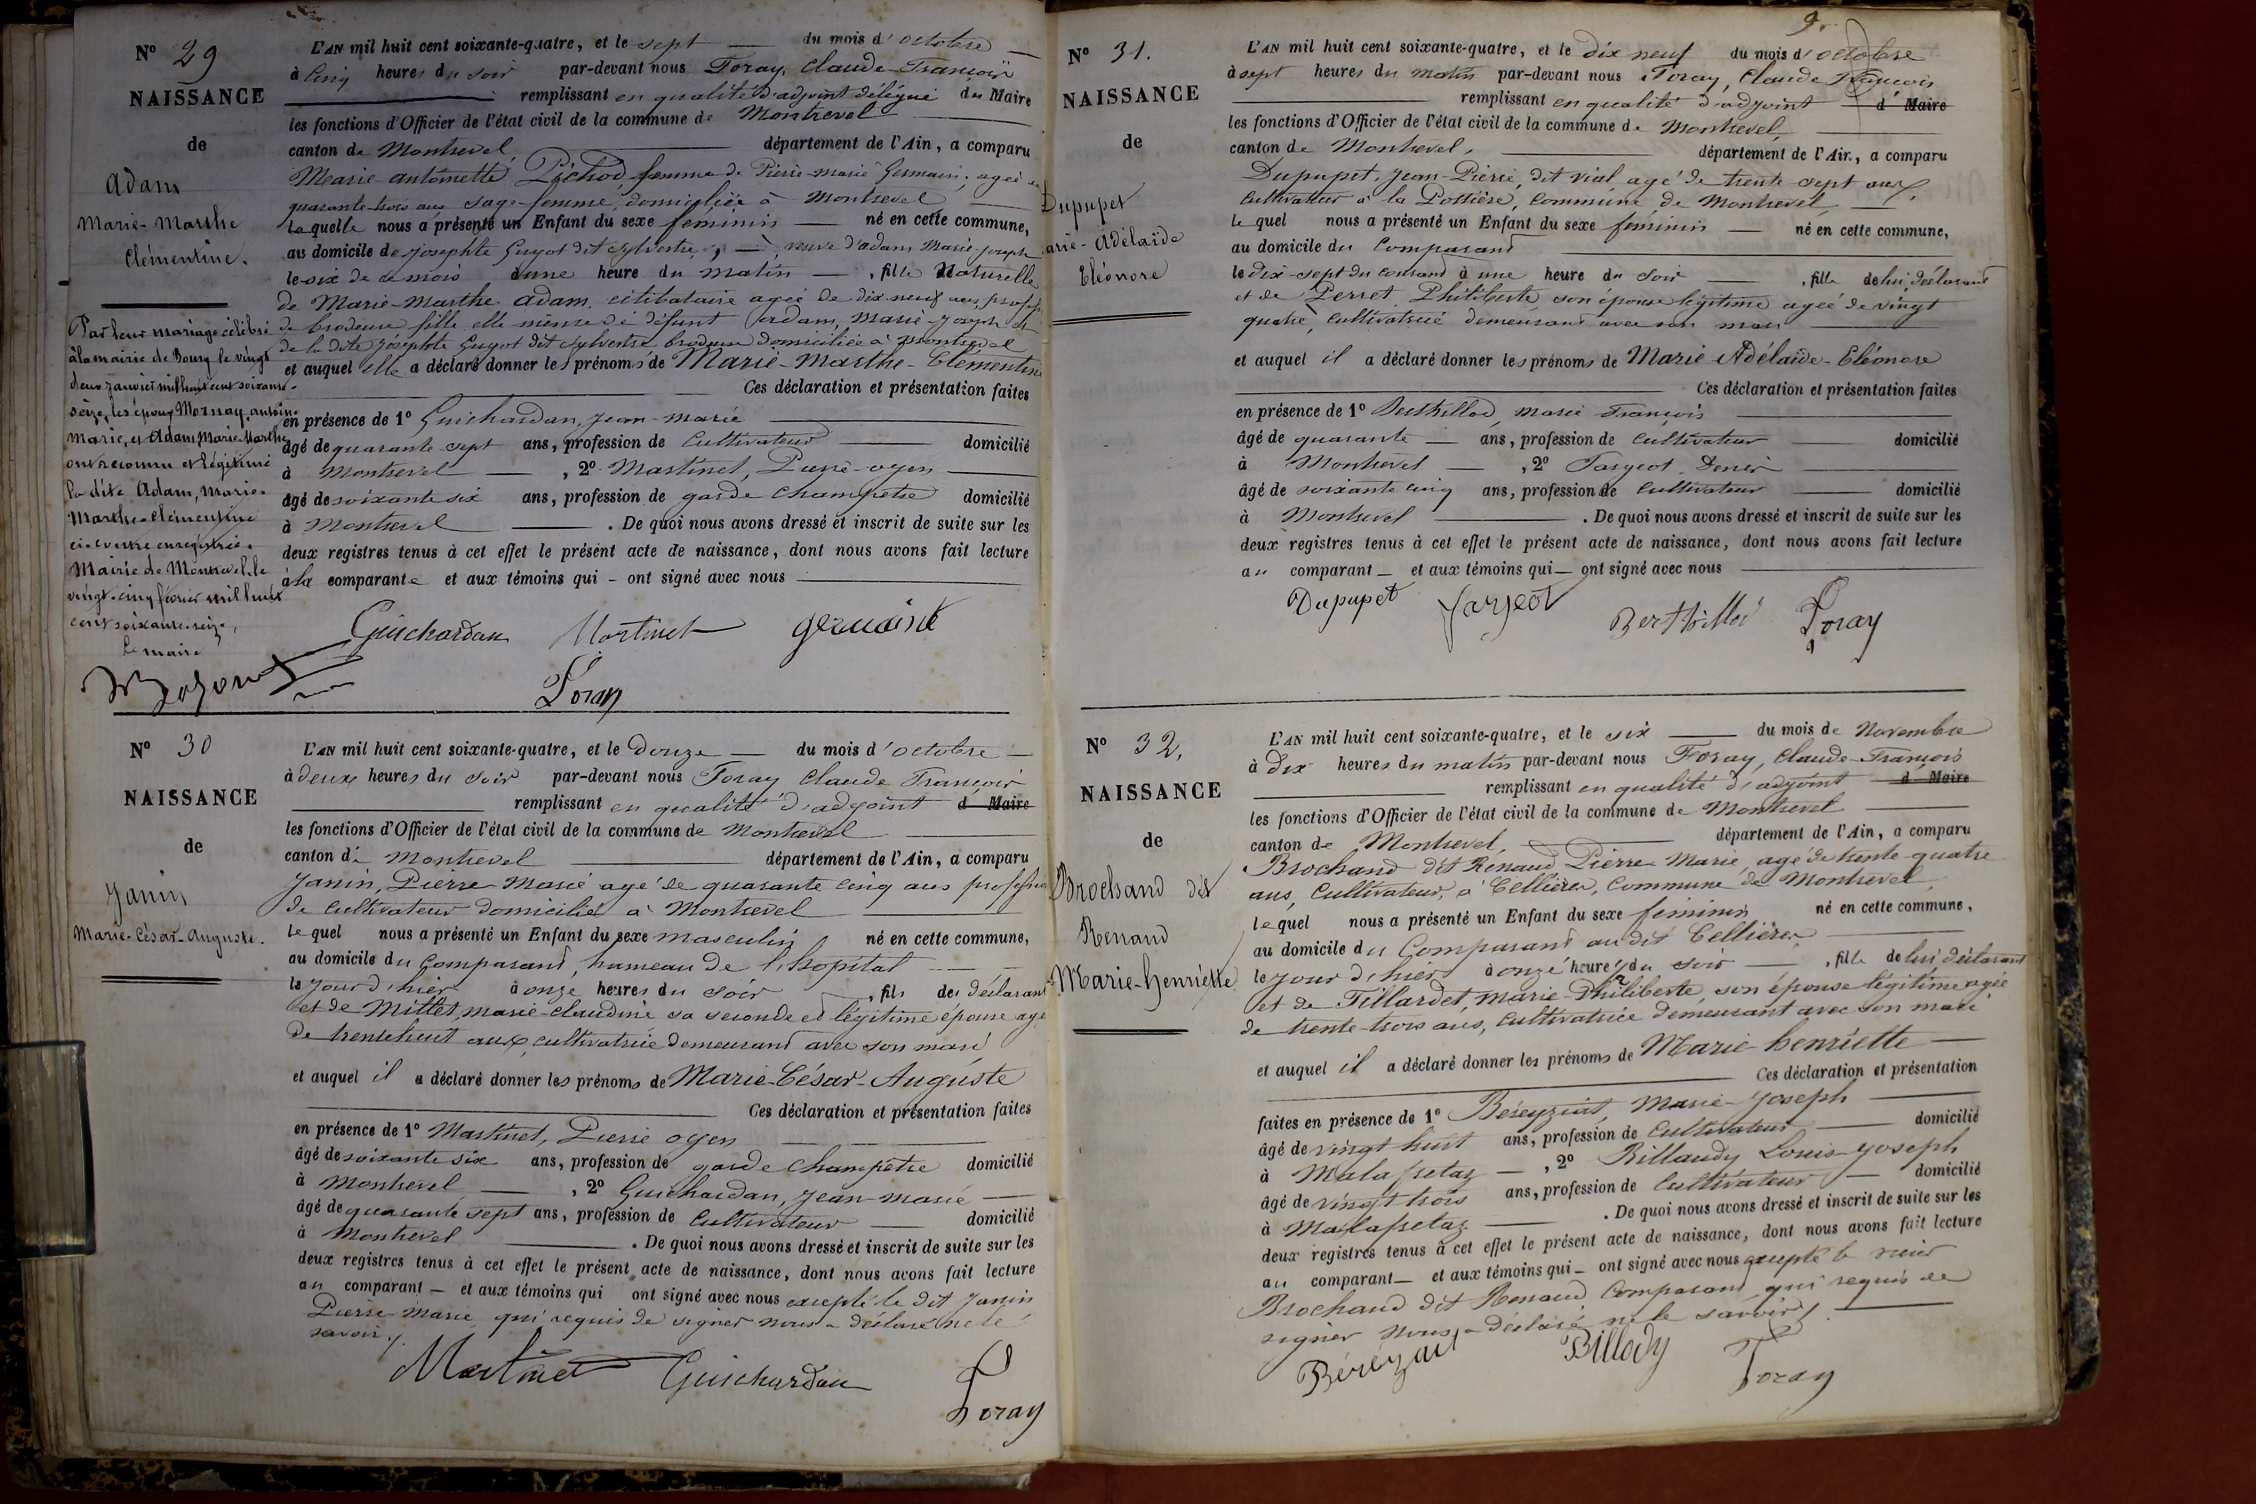 Nº 29
NAISSANCE
de
Adam
Marie-Marthe
Clémentine.
Par leur mariage célébré
à la mairie de Bourg le vingt
deux janvier mil huit cent soixante-
seize, les époux Mornay, antoine
marie, et Adam, Marie Marthe
ont reconnu et légitimé
la dite Adam, Marie-
Marthe-Clémentine
ci-contre enregistrée.
Mairie de Montrevel, le
vingt-cinq février mil huit
cent soixante-seize,
Le maire
L'AN mil huit cent soixante-quatre, et le sept du mois d'octobre
à cinq heures du soir par-devant nous Foray, Claude-François
remplissant en qualité d'adjoint délégué du Maire
les fonctions d'Officier de l'état civil de la commune de Montrevel
canton de Montrevel, département de l'Ain, a comparu
Marie-antoinette Pichod, femme de Pierre-marie Germain, agée de
quarante-trois ans sage-femme, domiciliée à Montrevel
laquelle nous a présenté un Enfant du sexe féminin né en cette commune,
au domicile de josephte Guyot dit Sylvestre, veuve d'adam Marie-joseph
le six de ce mois, à une heure du matin, fille Naturelle
de Marie-Marthe Adam, célibataire agée de dix-neuf ans, profession
de brodeuse, fille elle même de défunt Adam, Marie-Joseph et
de la dite Josephte Guyot dit Sylvestre brodeuse domiciliée à Montrevel
et auquel elle a déclaré donner les prénoms de Marie-Marthe-Clémentine
Ces déclaration et présentation faites
en présence de 1º Guichardan, Jean-marie
âgé de quarante sept ans, profession de Cultivateur domicilié
à Montrevel, 2º Martinet, Pierre-oyen
âgé de soixante six ans, profession de garde champêtre domicilié
à Montrevel. De quoi nous avons dressé et inscrit de suite sur les
deux registres tenus à cet effet le présent acte de naissance, dont nous avons fait lecture
à la comparante et aux témoins qui - ont signé avec nous
Guichardan Martinet germain
Foray
Nº 30
NAISSANCE
de
Janin
Marie-César-Auguste.
L'AN mil huit cent soixante-quatre, et le Douze du mois d'octobre
à deux heures du soir par-devant nous Foray Claude François
remplissant en qualité d'adjoint d Maire
les fonctions d'Officier de l'état civil de la commune de Montrevel
canton de Montrevel département de l'Ain, a comparu
Janin, Pierre Marie agé de quarante cinq ans profession
de cultivateur domicilié à Montrevel
lequel nous a présenté un Enfant du sexe masculin né en cette commune,
au domicile du Comparant, hameau de l'hopital
le jour d'hier à onze heures du soir, fils de déclarant
et de Millet, marie-claudine sa seconde et légitime épouse agée
de trente huit ans, cultivatrice demeurant avec son mari
et auquel il a déclaré donner les prénoms de Marie-César-Auguste
Ces déclaration et présentation faites
en présence de 1º Martinet, Pierre oyen
âgé de soixante six ans, profession de garde champêtre domicilié
à Montrevel, 2º Guichardan, Jean-marie
âgé de quarante sept ans, profession de Cultivateur domicilié
à Montrevel. De quoi nous avons dressé et inscrit de suite sur les
deux registres tenus à cet effet le présent acte de naissance, dont nous avons fait lecture
au comparant - et aux témoins qui ont signé avec nous excepté le dit Janin
Pierre-Marie, qui requis de signer nous a déclaré ne le
savoir.
Martinet Guichardan Foray
9.
Nº 31.
NAISSANCE
de
Dupupet
arie-Adélaïde
Eléonore
L'AN mil huit cent soixante-quatre, et le dix neuf du mois d'octobre
à sept heures du matin par-devant nous Foray, Claude François
remplissant en qualité d'adjoint d Maire
les fonctions d'Officier de l'état civil de la commune de Montrevel,
canton de Montrevel, département de l'Ain, a comparu
Dupupet, Jean-Pierre, dit Vial, agé de trente sept ans,
Cultivateur à la Possière, Commune de Montrevel
lequel nous a présenté un Enfant du sexe féminin né en cette commune,
au domicile du Comparant
le dix-sept du courant à une heure du soir, fille de lui déclarant
et de Perret, Philiberte son épouse légitime agée de vingt
quatre, cultivatrice demeurant avec son mari
et auquel il a déclaré donner les prénoms de Marie-Adélaïde-Eléonore
Ces déclaration et présentation faites
en présence de 1º Berthillod, marie François
âgé de quarante ans, profession de Cultivateur domicilié
à Montrevel, 2º Fargeot, Denis
âgé de soixante cinq ans, profession de Cultivateur domicilié
à Montrevel. De quoi nous avons dressé et inscrit de suite sur les
deux registres tenus à cet effet le présent acte de naissance, dont nous avons fait lecture
au comparant - et aux témoins qui - ont signé avec nous
Dupupet fargeot Berthillod Foray
Nº 32.
NAISSANCE
de
Brochand dit
Renaud
Marie-henriette
L'AN mil huit cent soixante-quatre, et le six du mois de Novembre
à dix heures du matin par-devant nous Foray, Claude-François
remplissant en qualité d'adjoint d Maire
les fonctions d'Officier de l'état civil de la commune de Montrevel
canton de Montrevel, département de l'Ain, a comparu
Brochand dit Renaud, Pierre Marie, agé de trente quatre
ans, Cultivateur, à Cellière, Commune de Montrevel,
lequel nous a présenté un Enfant du sexe féminin né en cette commune,
au domicile du Comparant au dit Cellière
le jour d'hier à onze heures du soir, fille de lui déclarant
et de Tillardet, marie-Philiberte, son épouse légitime agée
de trente-trois ans, Cultivatrice demeurant avec son mari
et auquel il a déclaré donner les prénoms de Marie-henriette
Ces déclaration et présentation
faites en présence de 1º Béréyziat, Marie-Joseph
âgé de vingt huit ans, profession de Cultivateur domicilié
à Malafretaz, 2º Billaudy Louis-Joseph
âgé de vingt trois ans, profession de Cultivateur domicilié
à Malafretaz. De quoi nous avons dressé et inscrit de suite sur les
deux registres tenus à cet effet le présent acte de naissance, dont nous avons fait lecture
au comparant - et aux témoins qui - ont signé avec nous excepté le sieur
Brochand dit Renaud Comparant, qui requis de
signer nous a déclaré ne le savoir.
Béréyziat Billody Foray